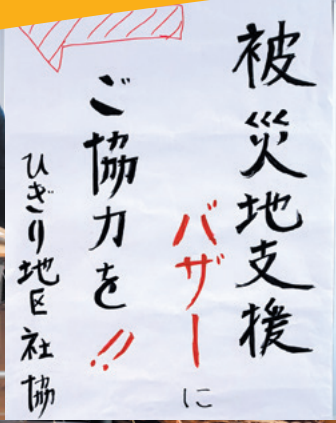 被災地支援
バザーに
ご協力を!!
ひぎり地区社協